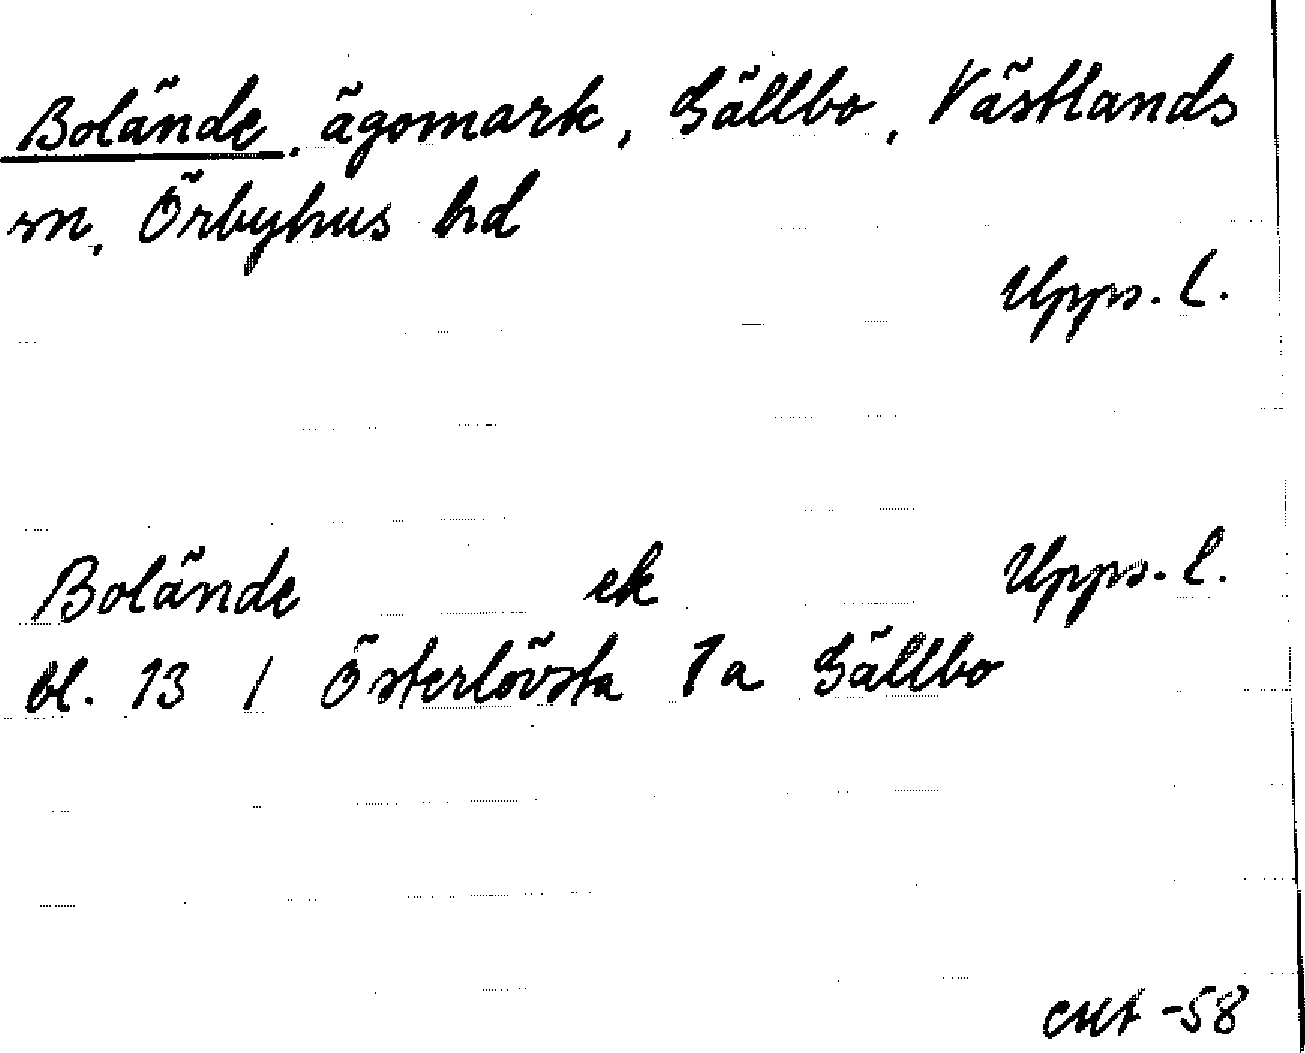 Bolände, ägomark, Sällbo, Västlands
sn, Örbyhus hd
Upps. l.
Bolände ek Upps. l.
bl. 13 1 Österlövsta 7a Sällbo
-58